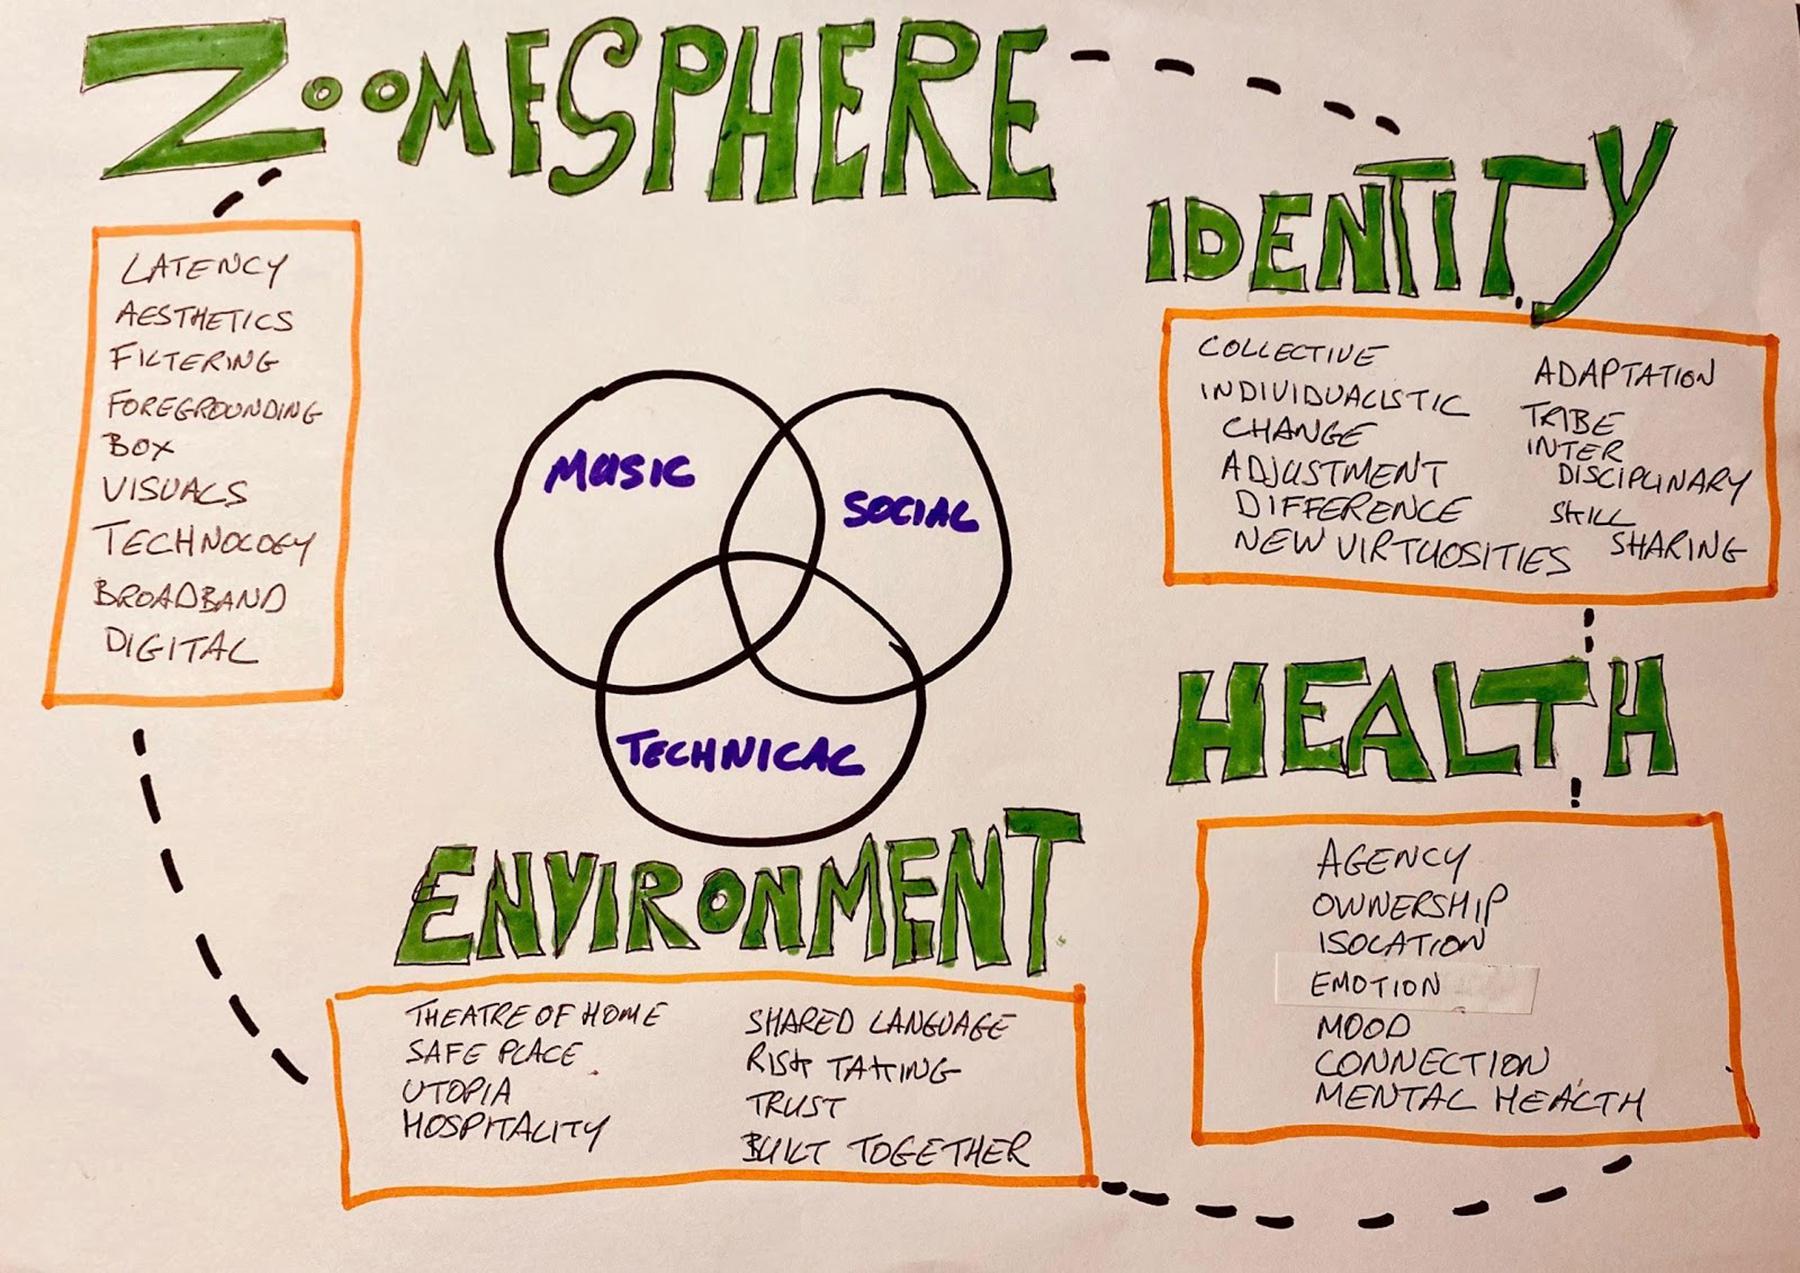 ZOOMESPHERE
LATENCY
AESTHETICS
FILTERING
FOREGROUNDING
BOX
VISUALS
TECHNOLOGY
BROADBAND
DIGITAL
MUSIC
SOCIAL
TECHNICAL
IDENTITY
COLLECTIVE
INDIVIDUALISTIC
CHANGE
ADJUSTMENT
DIFFERENCE
NEW VIRTUOSITIES
ADAPTATION
TRIBE
INTER
DISCIPLINARY
SKILL
SHARING
HEALTH
AGENCY
OWNERSHIP
ISOLATION
EMOTION
MOOD
CONNECTION
MENTAL HEALTH
ENVIRONMENT
THEATRE OF HOME
SAFE PLACE
UTOPIA
HOSPITALITY
SHARED LANGUAGE
RISK TAKING
TRUST
BUILT TOGETHER